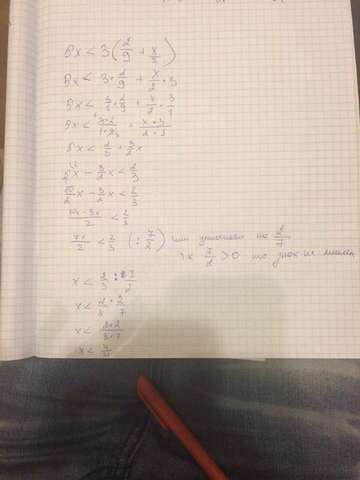 5x < 3(2/9 + x/2)
5x < 3·2/9 + x/2·3
5x < 3/1·2/9 + x/2·3/1
5x < 3·2/1·9 + x·3/2·1
5x < 2/3 + 3/2x
5x - 3/2x < 2/3
10/2x - 3/2x < 2/3
10x-3x/2 < 2/3
7x/2 < 2/3 (: 7/2) или умножаем на 2/7
7/2 > 0 то знак не
x < 2/3 : 7/2
x < 2/3·2/7
x < 2·2/3·7
x < 4/21